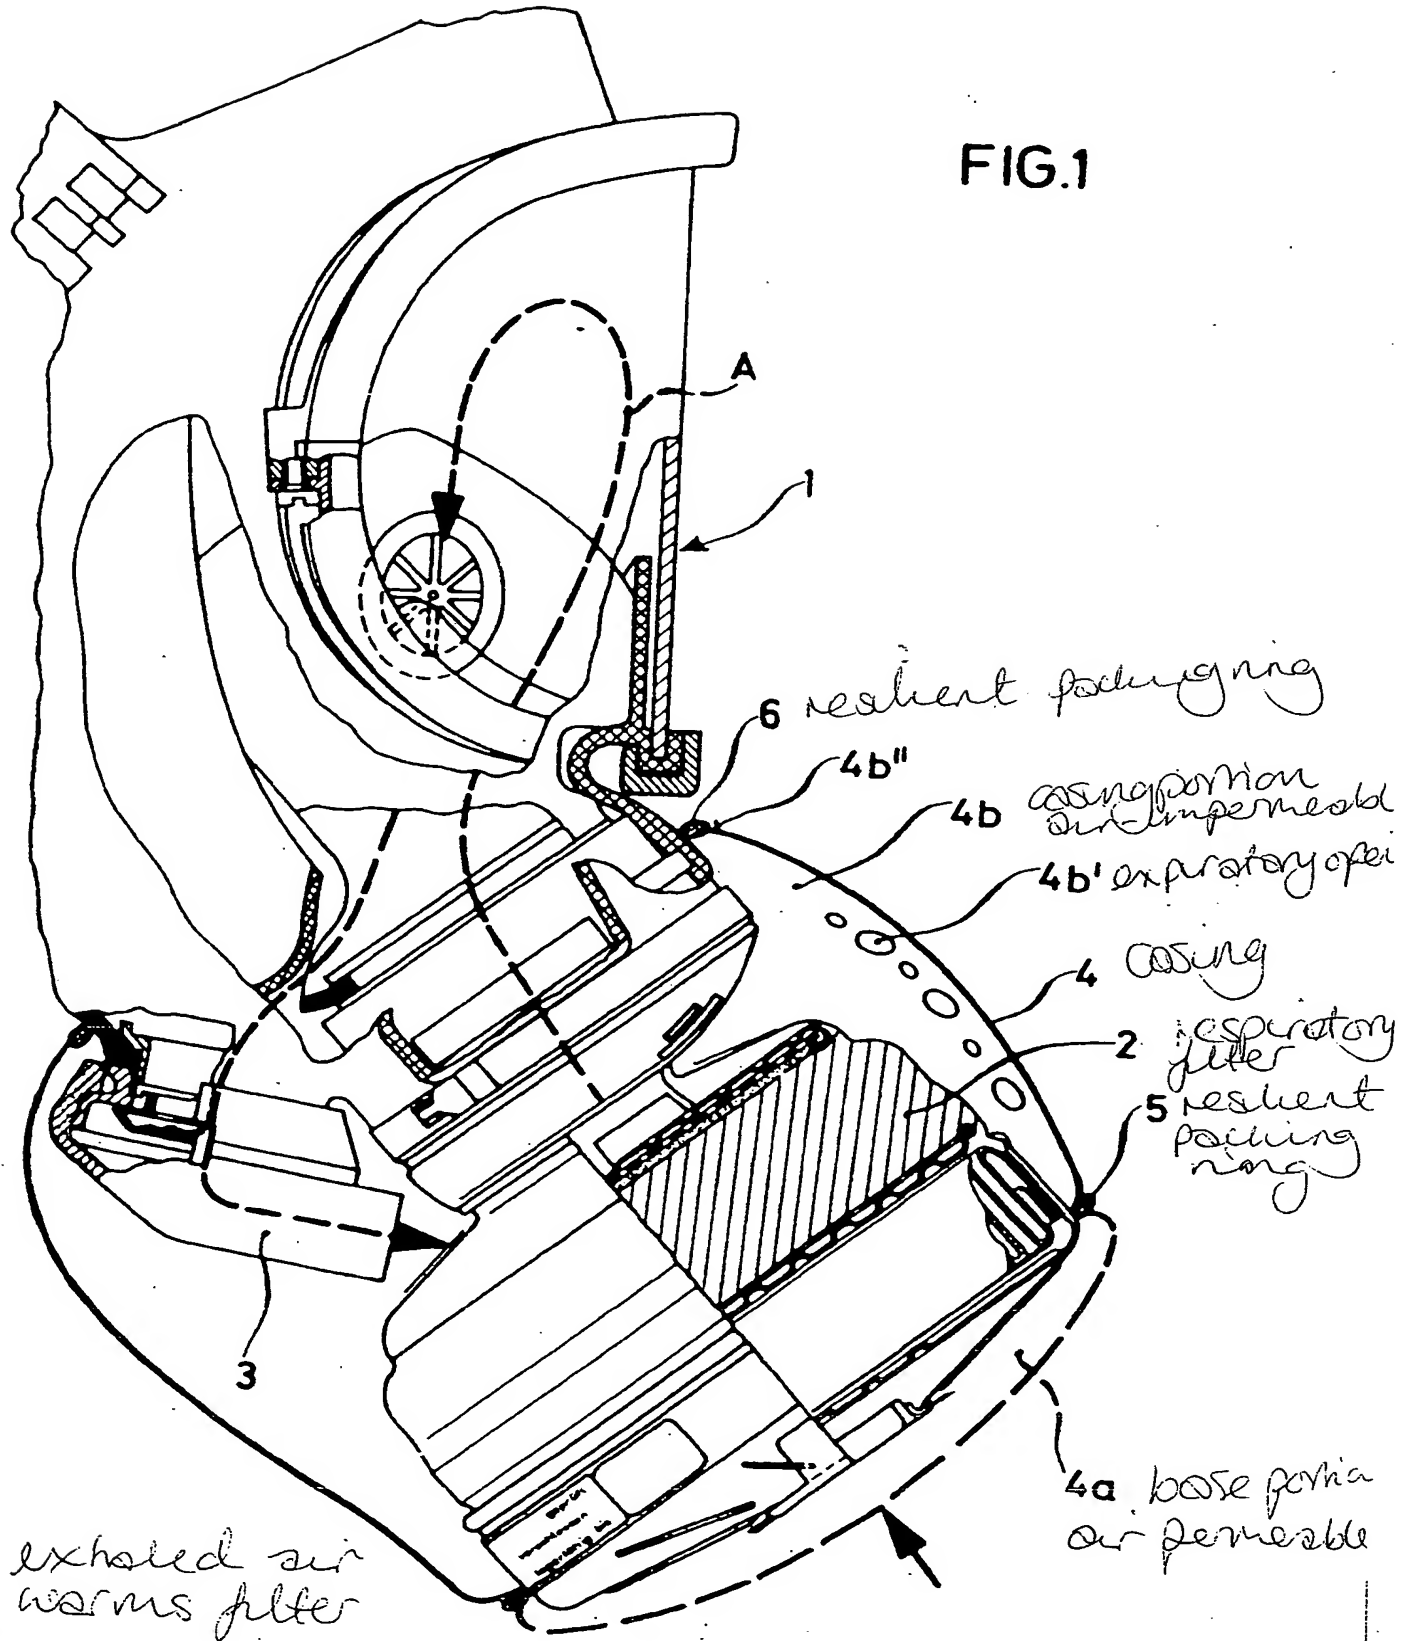 FIG.1
A
1
6 resilient packing ring
4b"
4b casing portion
air-impermeabl
4b' expiratory ope
4 casing
2 respiratory
filter
5 resilient
packing
ring
3
4a base portio
air permeable
exhaled air
warms filter